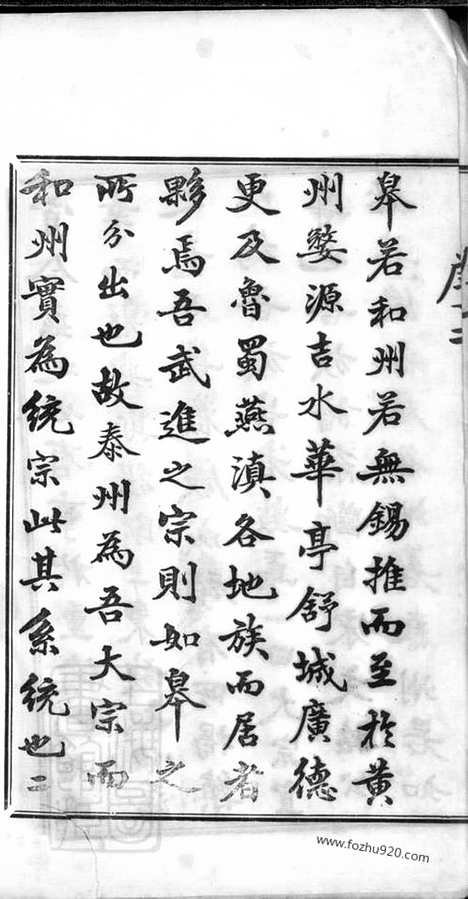 皋若和州若無錫推而至於黃
州婺源吉水華亭舒城廣德
更及魯蜀燕滇各地族而居者
夥焉吾武進之宗則如皋之
所分出也故泰州為吾大宗而
和州實為統宗此其系統也二
www.fozhu920.com